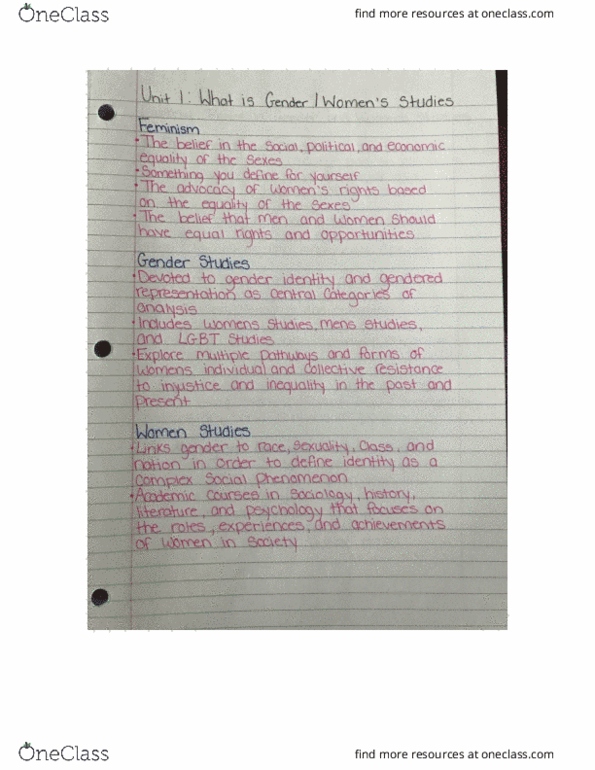 OneClass
find more resources at oneclass.com
Unit 1: What is Gender/Women's Studies
Feminism
• The belief in the Social, political, and economic
equality of the Sexes
• Something you define for yourself
• The advocacy of women's rights based
on the equality of the Sexes
• The belief that men and Women Should
have equal rights and opportunities
Gender Studies
• Devoted to gender identity and gendered
representation as central Categories of
analysis
• Includes womens studies, mens studies,
and LGBT Studies
• Explore multiple pathways and forms of
womens individual and collective resistance
to injustice and inequality in the past and
Present
Women Studies
• Links gender to race, Sexuality, Class, and
nation in order to define identity as a
Complex Social Phenomenon
• Academic Courses in Sociology, history,
literature, and psychology that focuses on
the roles, experiences, and achievements
of Women in Society
OneClass
find more resources at oneclass.com